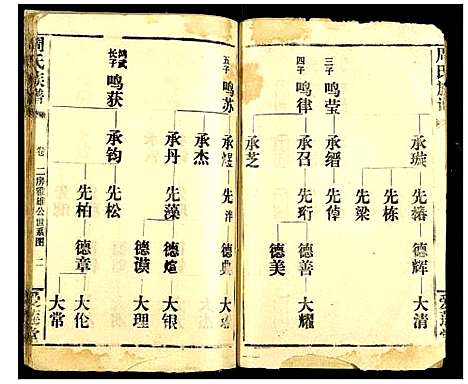 周氏族譜
承璇
先椿 先栋 先梁
德辉
大清
三子
鸣莹
承缙
先倬
四子
鸣律
承召 承芝
先珩
德善 德美
大耀
五子
鸣苏
承煜 承杰
先
德典
大
承丹
先藻
德煊 德谟
大银 大理
鸿武
长子
鸣获
承钧
先松 先柏
德章
大伦 大常
周氏族譜
卷 二房雅雄公世系图 二
爱莲堂